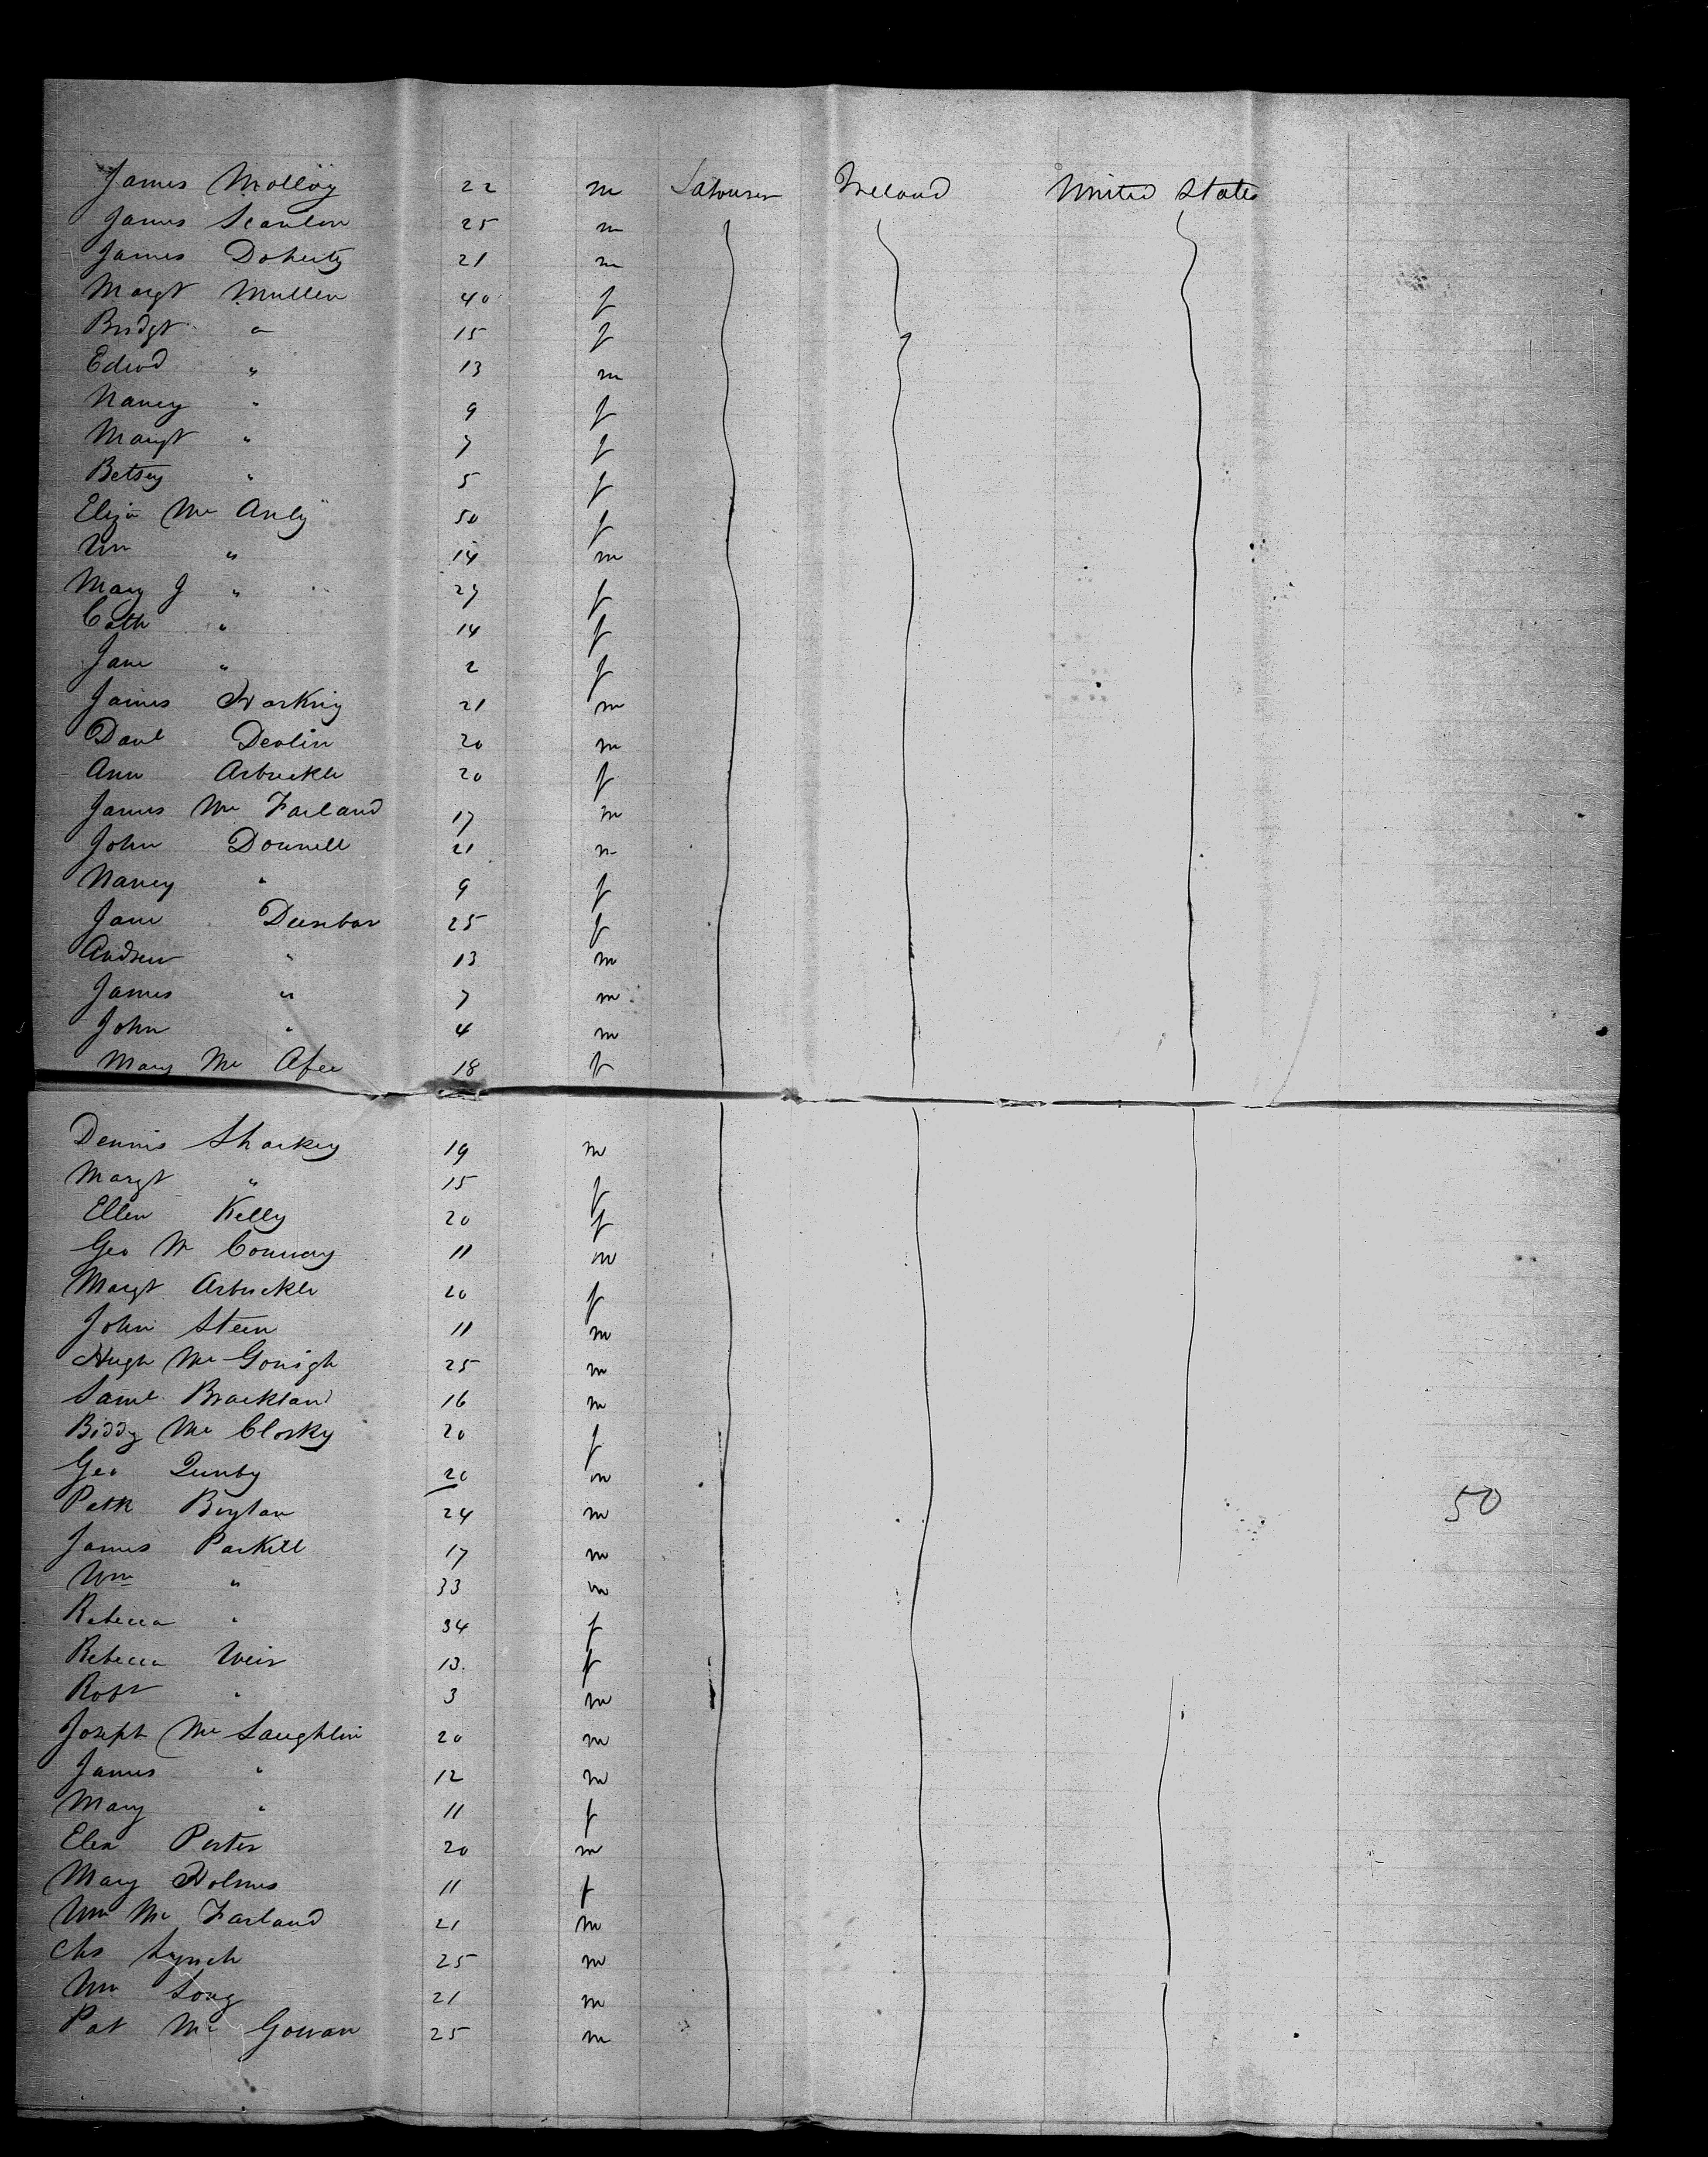 James Molloy 22 m Labourer Ireland United States
James Scanlon 25 m
James Doherty 21 m
Margt Mullen 40 f
Bridgt " 15 f
Edwd " 13 m
Nancy " 9 f
Margt " 7 f
Betsey " 5 f
Eliza Mc Anly 50 f
Wm " 14 m
Mary J " 27 f
Cath " 14 f
Jane " 2 f
James Harking 21 m
Danl Devlin 20 m
Ann Arbuckle 20 f
James Mc Farland 17 m
John Donnell 21 m
Nancy " 9 f
Jane Dunbar 25 f
Andrew " 13 m
James " 7 m
John " 4 m
Mary Mc Afee 18 f
Dennis Sharkey 19 m
Margt " 15 f
Ellen Kelly 20 f
Geo Mc Conway 11 m
Margt Arbuckle 20 f
John Steen 11 m
Hugh Mc Gonigh 25 m
Saml Brackland 16 m
Biddy Mc Closky 20 f
Geo Qunby 20 m
Patk Boylan 24 m 50
James Parkill 17 m
Wm " 33 m
Rebecca " 34 f
Rebecca Weir 13 f
Robt " 3 m
Joseph Mc Laughlin 20 m
James " 12 m
Mary " 11 f
Elex Porter 20 m
Mary Holmes 11 f
Wm Mc Farland 21 m
Chs Lynch 25 m
Wm Long 21 m
Pat Mc Gowan 25 m